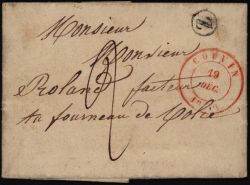 Monsieur
Monsieur
Roland facteur
au fourneau de
COUVIN
19
DÉC.